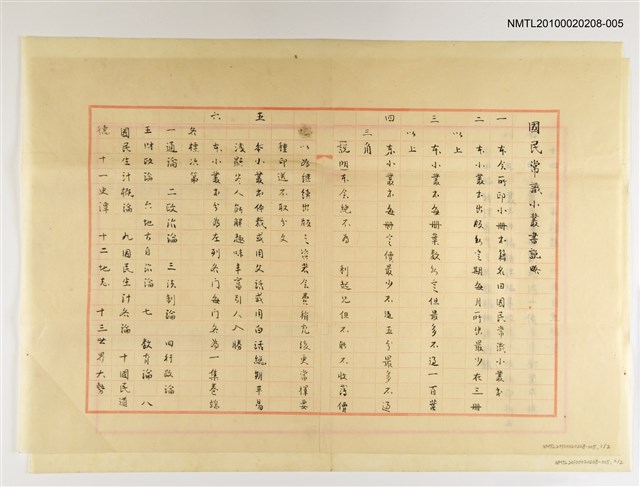 NMTL20100020208-005
國民常識小叢書說略
一 本會所印小冊書籍名曰國民常識小叢書
二 本小叢書出版無定期每月所出最少在三冊
以上
三 本小叢書每冊葉數無定但最多不過一百葉
以上
四 本小叢書每冊定價最少不過五分最多不過
三角
說明本會純不為 利起見但不能不收薄價
以為繼續出版之資若會費稍充後更當擇要
種印送不取分文
五 本小叢書體裁或用文話或用白話總期平易
淺顯尽人能解趣味丰富引人入勝
六 本小叢書分為左列各門每門各為一集卷總
各標次第
一通論 二政治論 三法制論 四行政論
五財政論 六地方自治論 七 教育論 八
國民生計概論 九國民生計各論 十國民道
德 十一史譚 十二地元 十三世界大勢
NMTL20100020208-005_1/2
NMTL20100020208-005_2/2